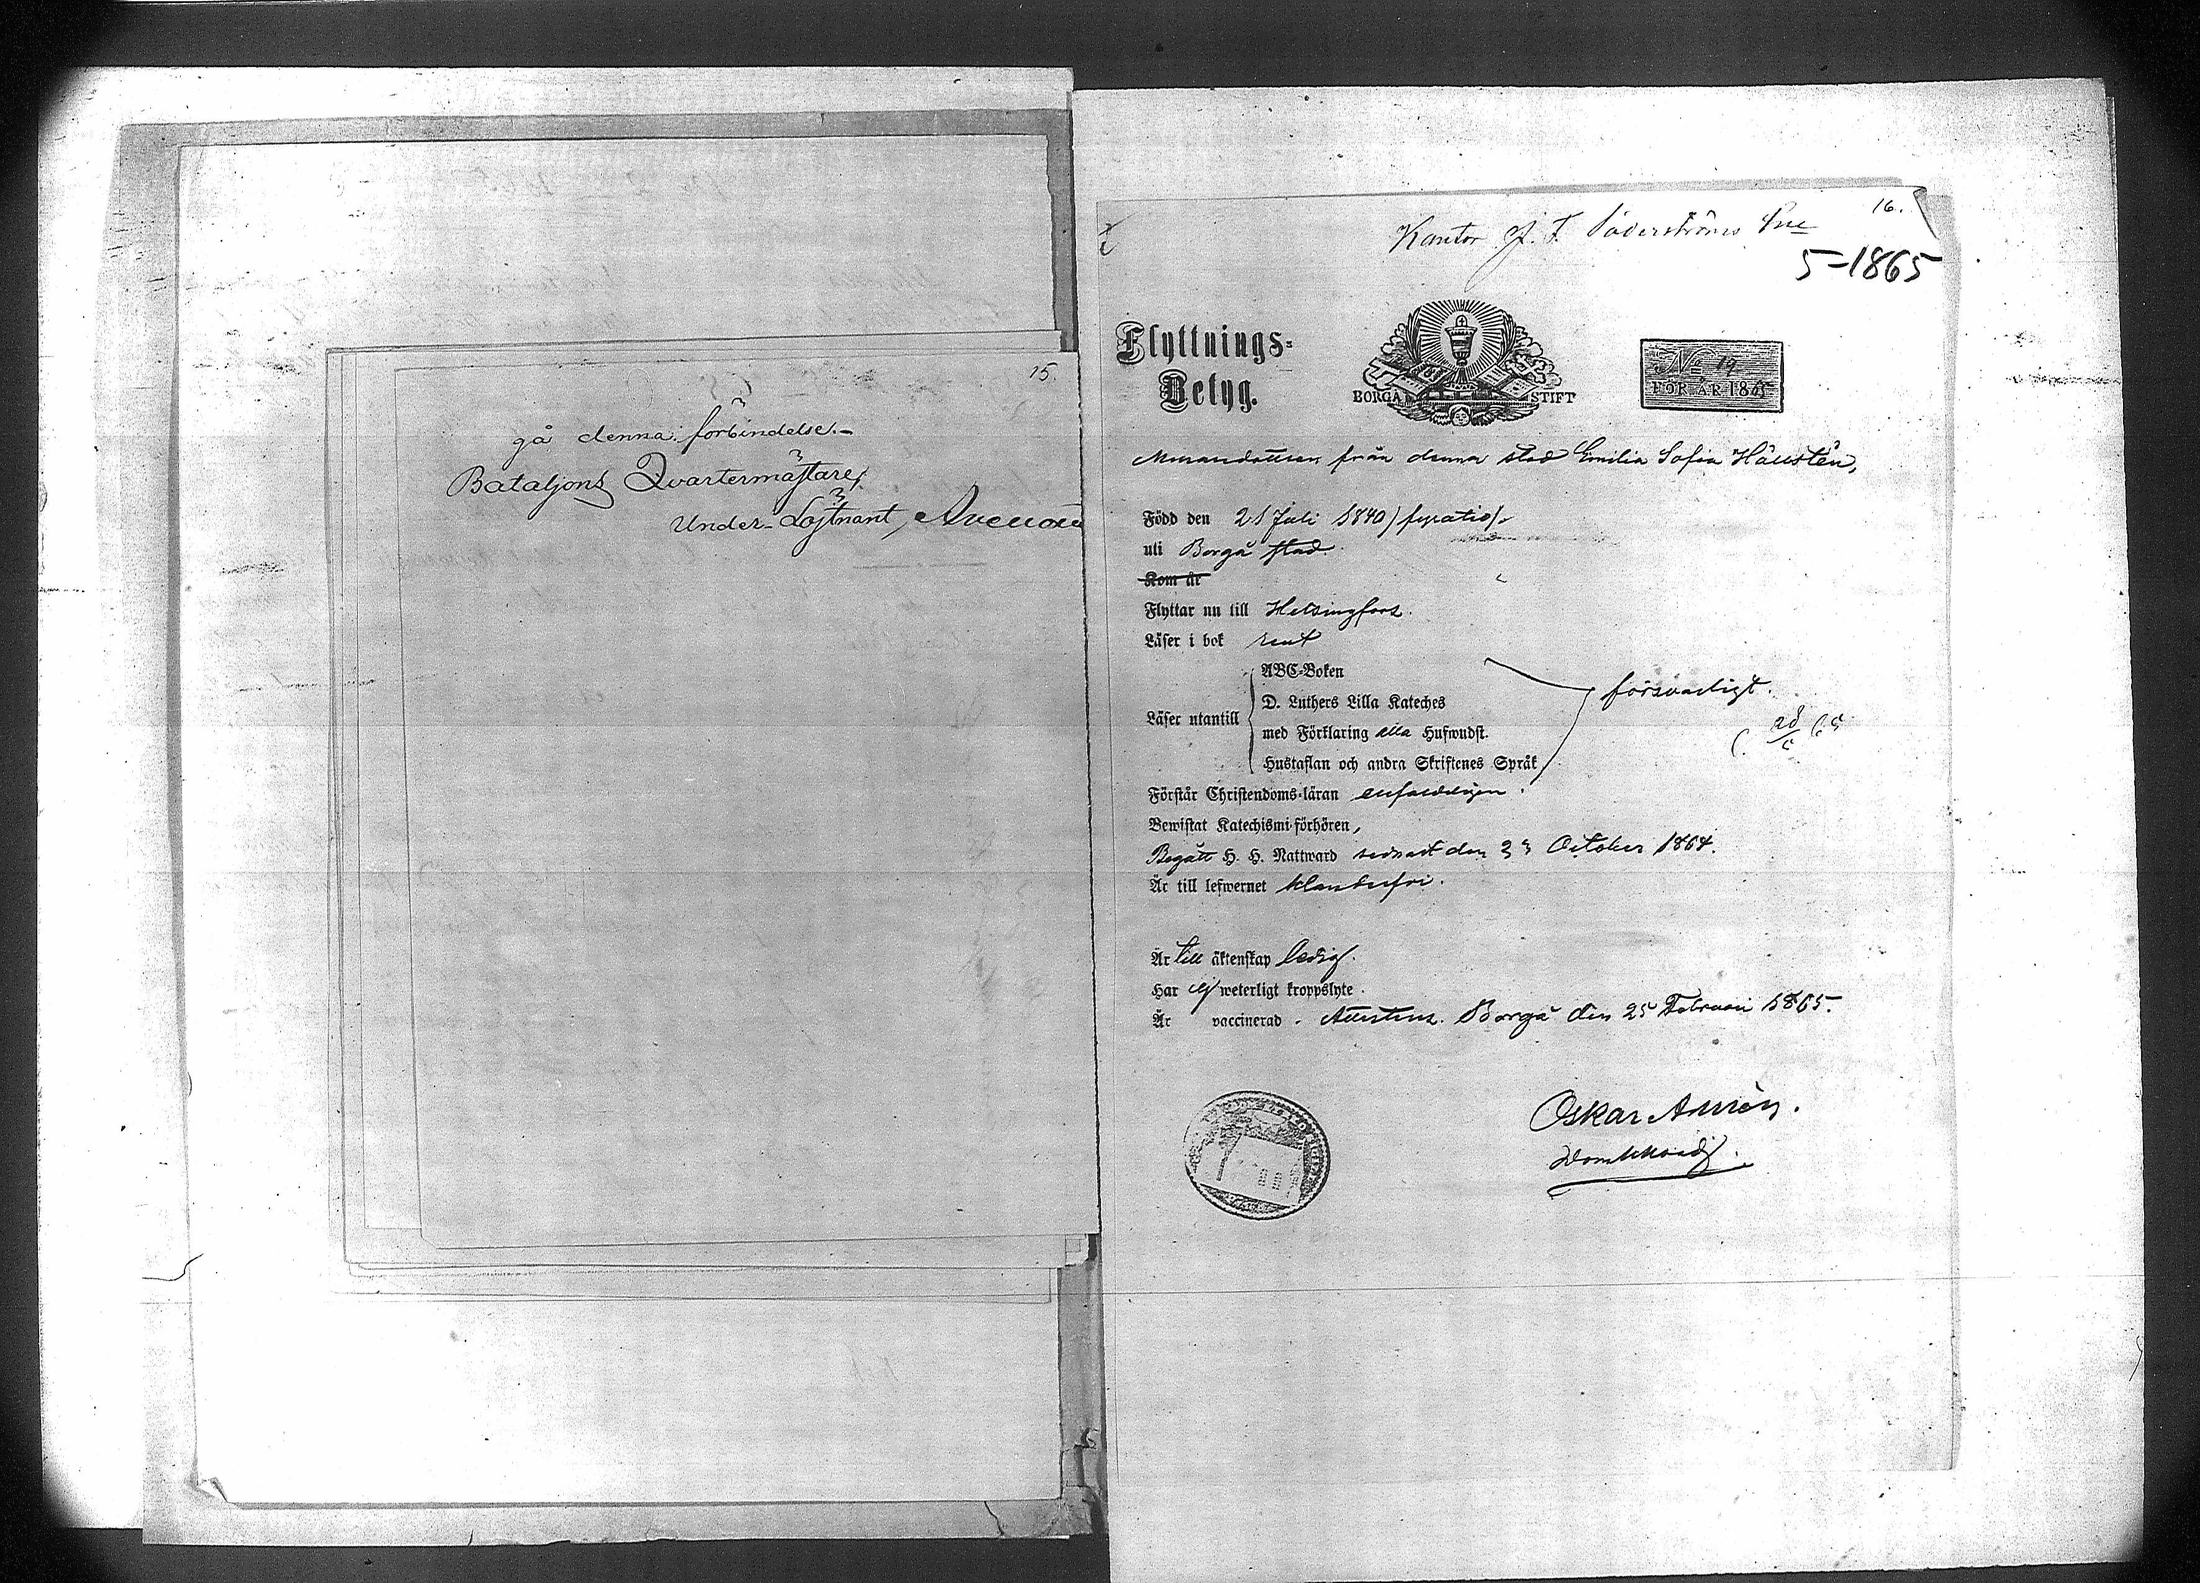 15.
gå denna förbindelse.-
Bataljons Qvartermästare,
Under-Löjtnant,
16.
Kantor J. F. Söderströms
5-1865
Flyttnings-
Betyg.
BORGÅ STIFT
No 19
FÖR ÅR 1865
från denna stad Emilia Sofia
Född den 21 Juli 1840 /fyratio/.
uti Borgå stad.
Kom år
Flyttar nu till Helsingfors.
Läser i bok rent
ABC-Boken
D. Luthers Lilla Kateches
Läser utantill
med Förklaring alla Hufwudst.
Hustaflan och andra Skriftenes Språk
försvarligt.
Förstår Christendoms-läran enfaldigen.
Bewistat Katechismi-förhören,
Begått H. H. Nattward sednast den 23 October 1864.
Är till lefwernet klanderfri.
Är till äktenskap ledig.
Har ej weterligt kroppslyte.
Är vaccinerad. Attesteras. Borgå den 25 Februari 1865.
Oskar